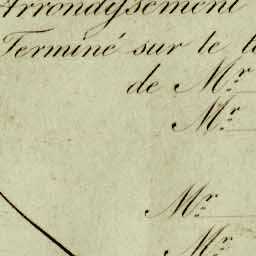 Arrondissement
Terminé sur le
de Mr
Mr
Mr
Mr